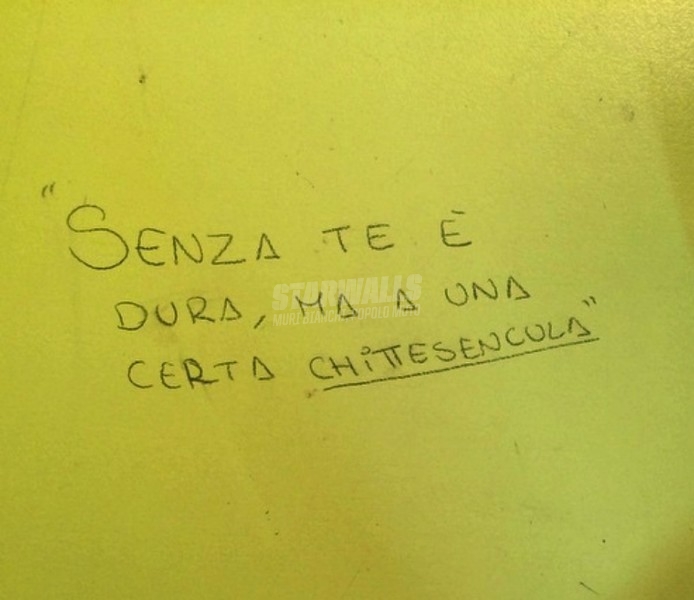 "SENZA TE È
DURA, MA A UNA
CERTA CHITTESENCULA"
STARWALLS
MURI BIANCHI, POPOLO MUTO